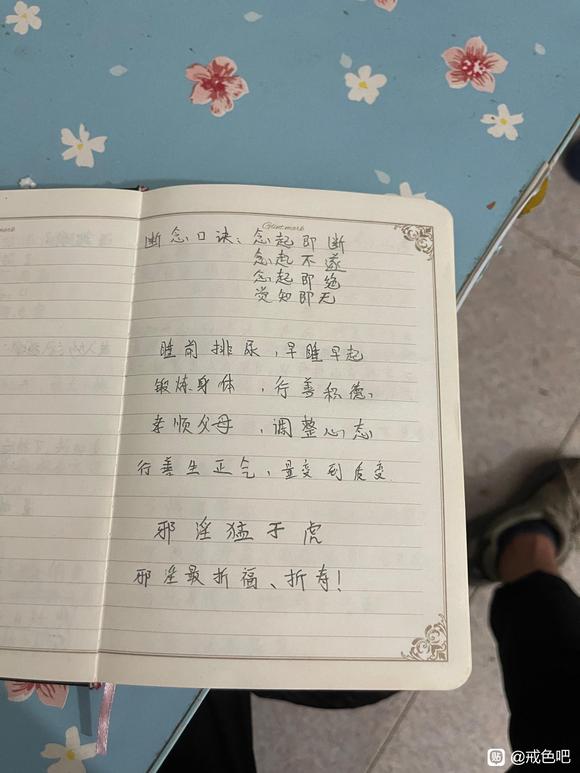 Glintmark
断念口诀：念起即断
念起不遂
念起即绝
觉知即无
睡前排尿，早睡早起
锻炼身体，行善积德，
孝顺父母，调整心态
行善生正气，量变到质变
邪淫猛于虎
邪淫最折福、折寿！
贴 @戒色吧